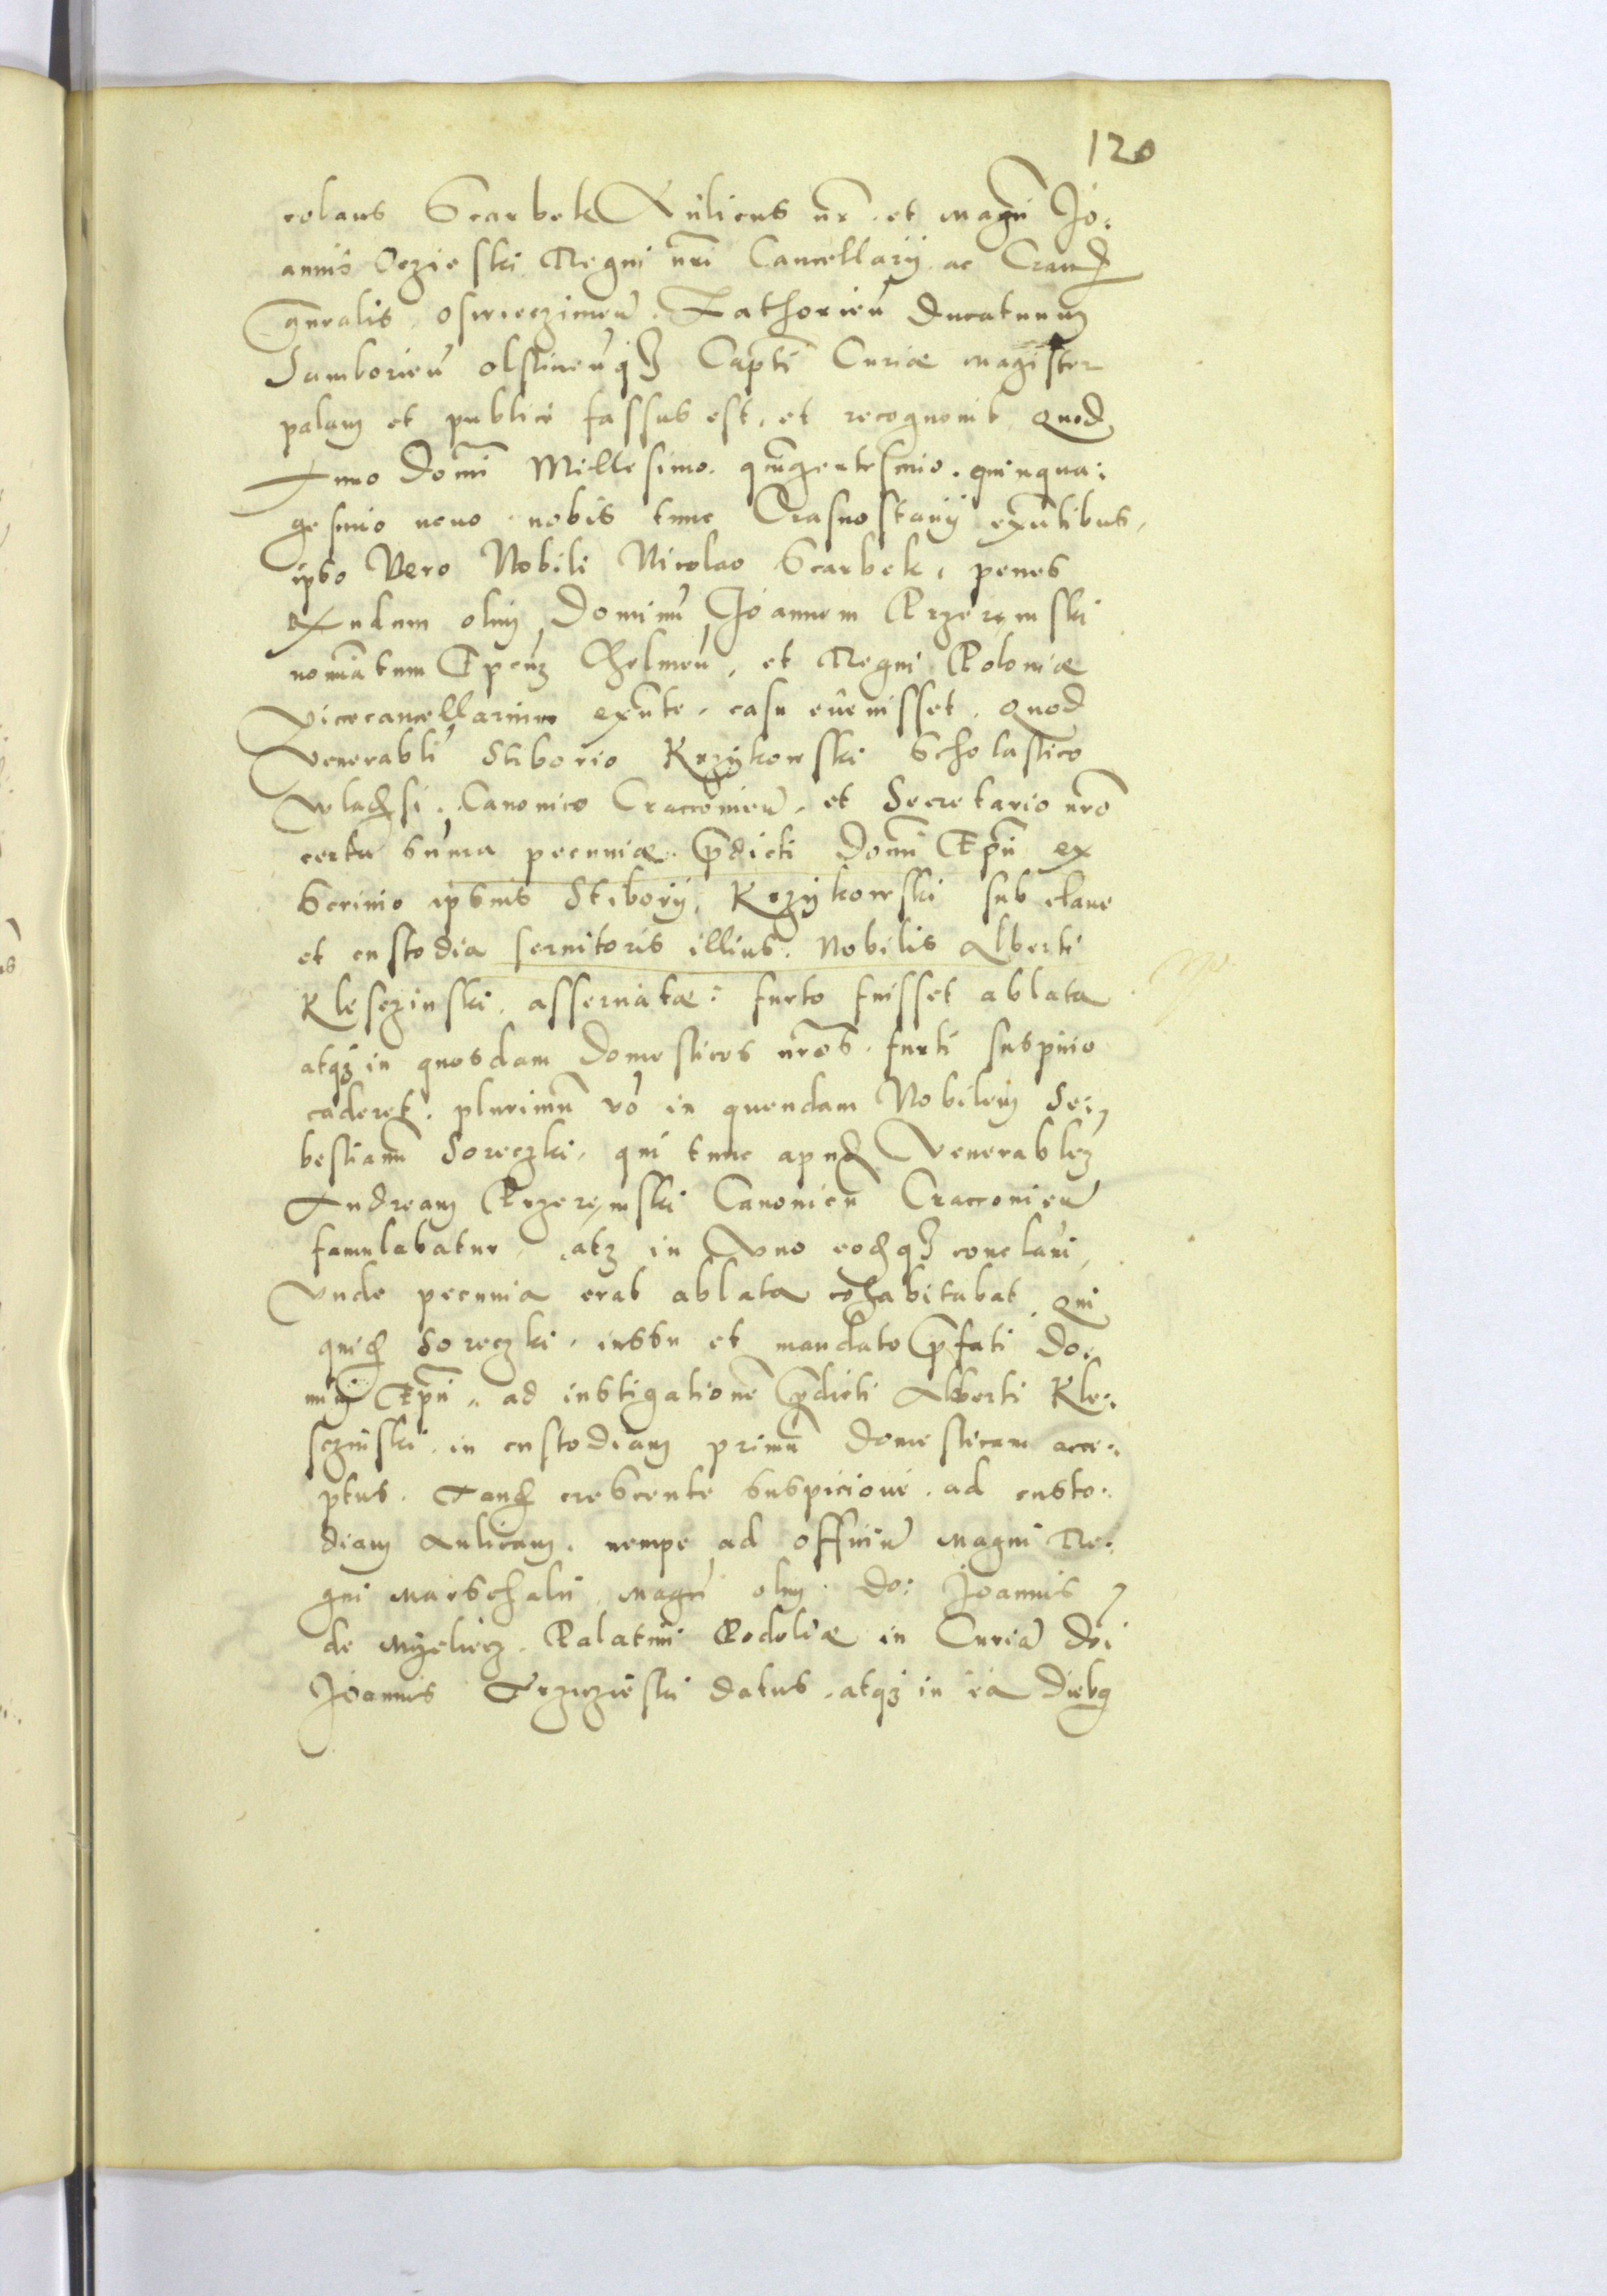 120
colaus Scarbek Aulicus nr̄. et magn̄i Jo:
annis Oczieski Regni nr̄i Cancellarij ac Cracoῡ
gn̄ralis, osswieczimen̄. Zathorien̄ Ducatuum
Samborien̄ olstinen̄q3 Capt̄i Curiæ magister
palam et publice fassus est, et recognovit. Quod
Anno Domī Millesimo. quīngentesimo. quinqua:
gesimo nono. nobis tunc Crasnostavij exn̄tibus,
ipso Vero Nobili Nicolao Scarbek, penes
Rndum olim Dominū Joannem Przerẹmski
nomīatum Ep̄cum Chelmen̄, et Regni Poloniæ
Vicecancellarium exn̄te, casu evenisset. Quod
Venerabli Stiborio Krzykowski Scholastico
wladsi. Canonico Cracovien̄. et Secretario nr̄o
certa sum̄a pecuniæ. p̄dicti Domī Ep̄i ex
Scrinio ipsius Stiborij Krzykowski sub clave
et custodia servitoris illius. Nobilis Alberti
Kleseczinski, asservatæ: furto fuisset ablata
atq3 in quosdam domesticos nr̄os. furti suspicio
caderet. plurimū vō in quendam Nobilem Se:
bestianū Soreczki, qui tunc apud Venerablem
Andream Przerẹmski Canonicū Cracovien̄
famulabatur, atq3 in Uno eodq3 conclavi,
Unde pecunia erat ablata cohabitabat. Qui
quid Soreczki. iussu et mandato p̄fati Do:
mini Ep̄i. ad instigationē p̄dicti Alberti Kle:
sczinski. in custodiam primū domesticam acce:
ptus. Tand crescente suspicione. ad custo:
diam Aulicam. nempe ad officiū magni Re:
gni Marschalci magn̄i olim. Do: Joannis
de Myelecz. Palatini Podoliæ in Curiā Dn̄i
Joannis Trzczieski datus. atq3 in ea dieb9